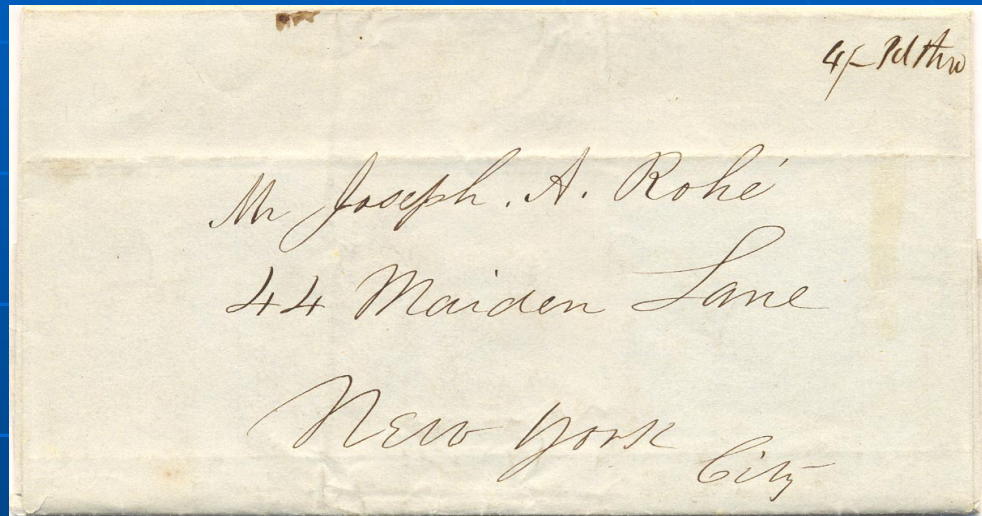 4/- Pd thro
Mr Joseph. A. Rohé
44 Maiden Lane
New York
City